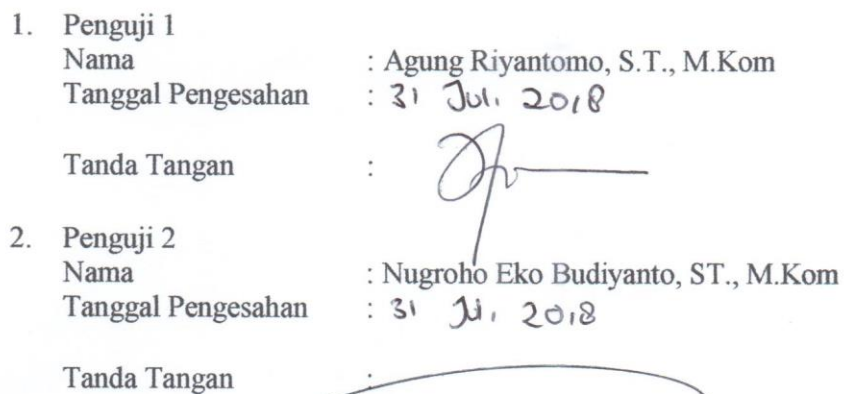 1. Penguji 1
Nama : Agung Riyantomo, S.T., M.Kom
Tanggal Pengesahan : 31 Juli 2018
Tanda Tangan :
2. Penguji 2
Nama : Nugroho Eko Budiyanto, ST., M.Kom
Tanggal Pengesahan : 31 Juli 2018
Tanda Tangan :